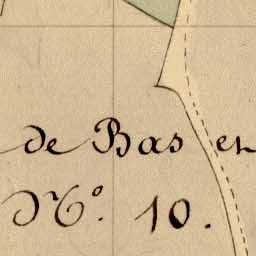 de Bas en
N.º 10.